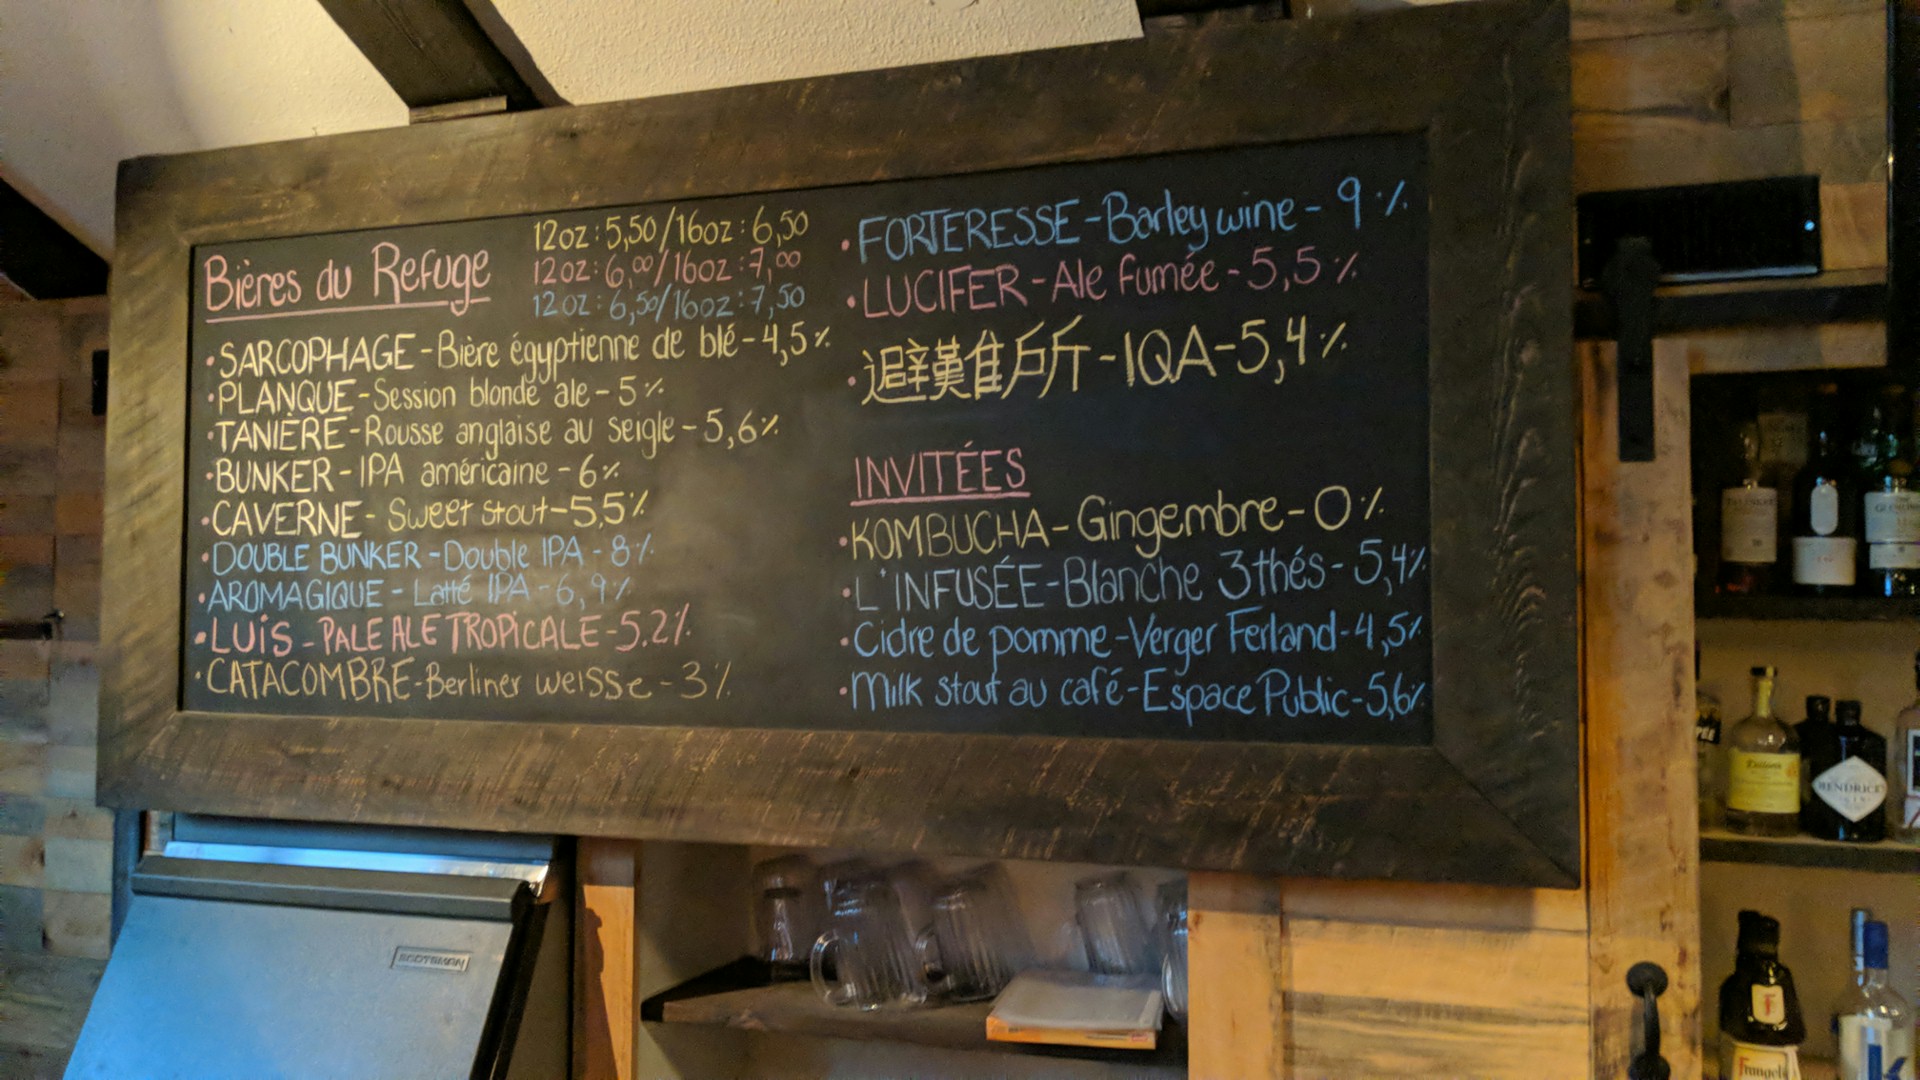 Bières du Refuge
12oz : 5,50/16oz : 6,50
12oz : 6,00/16oz : 7,00
12oz : 6,50/16oz : 7,50
• SARCOPHAGE - Bière égyptienne de blé - 4,5%
• PLANQUE - Session blonde ale - 5%
• TANIÈRE - Rousse anglaise au seigle - 5,6%
• BUNKER - IPA américaine - 6%
• CAVERNE - Sweet stout - 5,5%
• DOUBLE BUNKER - Double IPA - 8%
• AROMAGIQUE - Latté IPA - 6,9%
• LUIS - PALE ALE TROPICALE - 5.2%
• CATACOMBRE - Berliner weisse - 3%
• FORTERESSE - Barley wine - 9%
• LUCIFER - Ale fumée - 5,5%
• 避難所 - IQA - 5,4%
INVITÉES
• KOMBUCHA - Gingembre - 0%
• L'INFUSÉE - Blanche 3 thés - 5,4%
• Cidre de pomme - Verger Ferland - 4,5%
• Milk stout au café - Espace Public - 5,6%
SCOTSMAN
TALISKER
HENDRICK'S
GIN